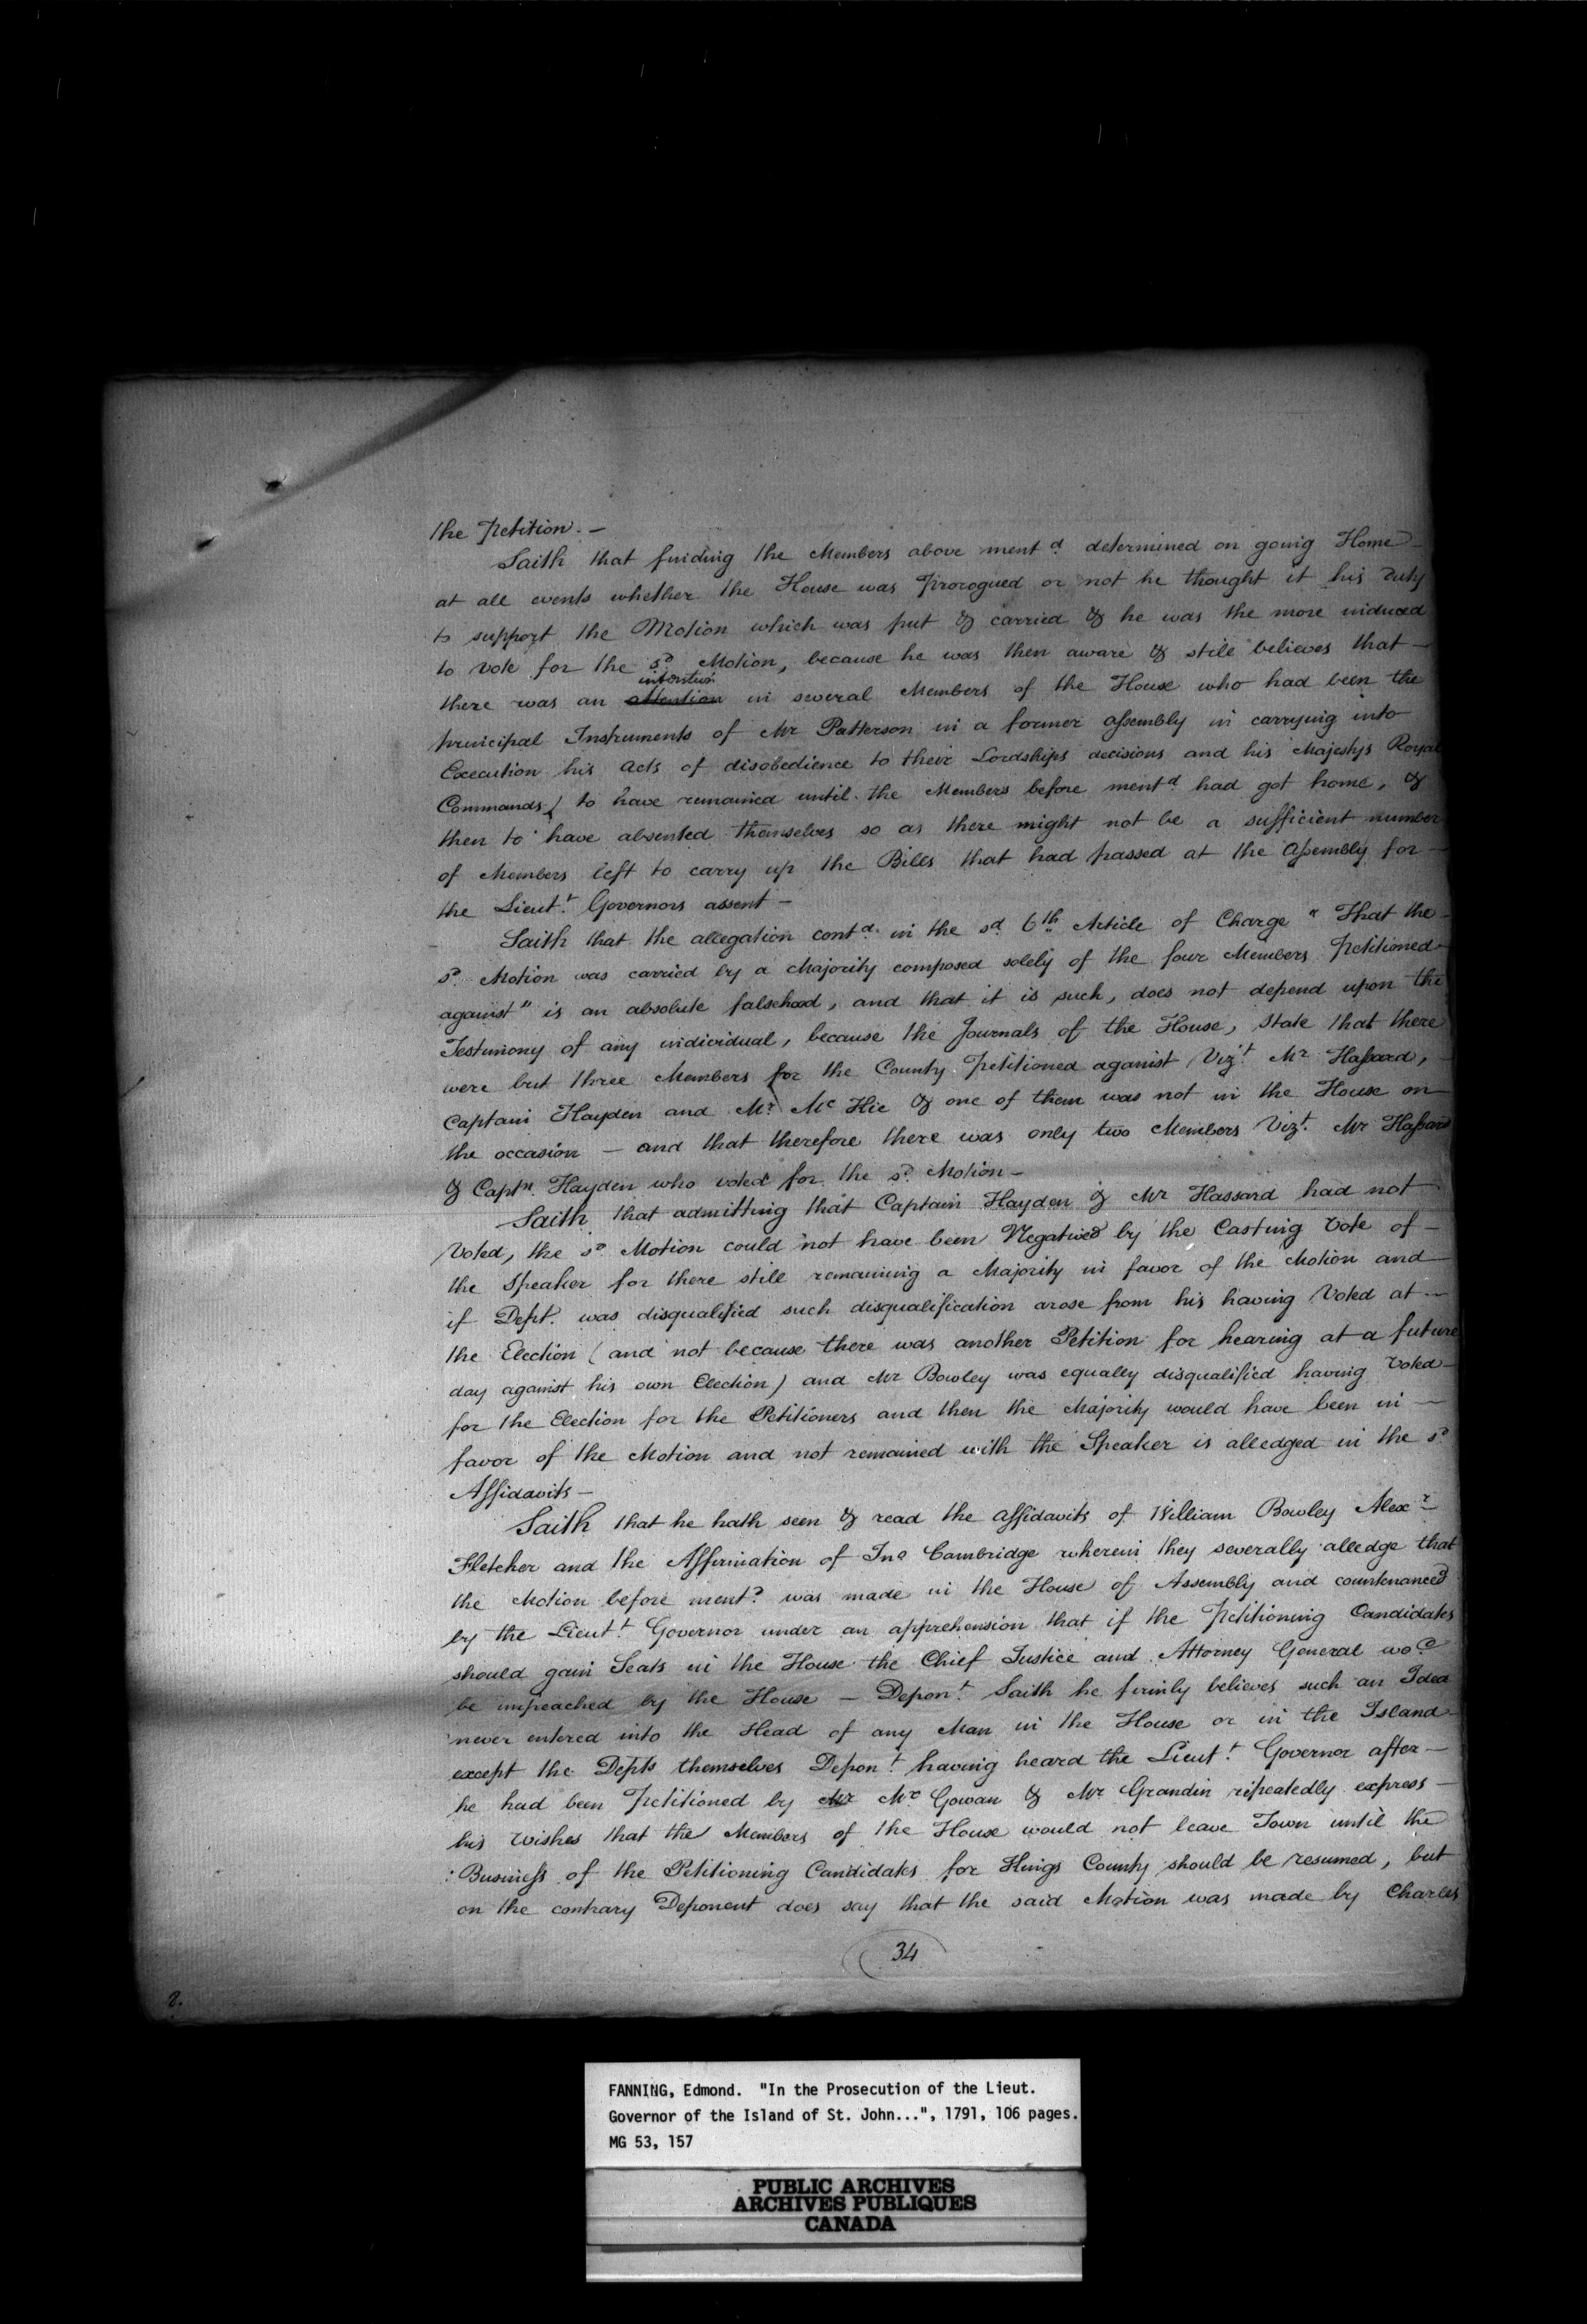 the Petition. —
Saith that finding the Members above mentd determined on going Home —
at all events whether the House was Prorogued or not he thought it his Duty
to support the Motion which was put & carried & he was the more induced
to vote for the sd Motion, because he was then aware & still believes that —
intention
there was an attention in several Members of the House who had been the
principal Instruments of Mr Patterson in a former Assembly in carrying into
Execution his Acts of disobedience to their Lordships decisions and his Majestys Royal
Commands) to have remained until the Members before mentd had got home, &
then to have absented themselves so as there might not be a sufficient number
of Members left to carry up the Bills that had passed at the Assembly for —
the Lieut.t Governors assent —
Saith that the allegation contd in the sd 6th Article of Charge " That the —
sd Motion was carried by a Majority composed solely of the four Members Petitioned —
against" is an absolute falsehood, and that it is such, does not depend upon the
Testimony of any individual, because the Journals of the House, State that there
were but three Members for the County Petitioned against Vizt Mr Hassard, —
Captain Hayden and Mr Mc Hie & one of them was not in the House on —
the occasion — and that therefore there was only two Members Vizt. Mr Hassard
& Captn. Hayden who voted for the sd Motion —
Saith that admitting that Captain Hayden & Mr Hassard had not
Voted, the sd Motion could not have been Negatived by the Casting Vote of —
the Speaker for there still remaining a Majority in favor of the Motion and —
if Dept. was disqualified such disqualification arose from his having Voted at —
the Election (and not because there was another Petition for hearing at a future
day against his own Election) and Mr Bowley was equally disqualified having Voted —
for the Election for the Petitioners and then the Majority would have been in —
favor of the Motion and not remained with the Speaker is alledged in the sd
Affidavits —
Saith that he hath seen & read the affidavits of William Bowley Alexr
Fletcher and the Affirmation of Jno Cambridge wherein they severally alledge that
the Motion before mentd was made in the House of Assembly and countenanced
by the Lieut.t Governor under an apprehension that if the Petitioning Candidates
should gain Seats in the House the Chief Justice and Attorney General wod
be impeached by the House — Depont. Saith he firmly believes such an Idea
never entered into the Head of any Man in the House or in the Island —
except the Depts themselves Depont. having heard the Lieut.t Governor after —
he had been Petitioned by Mr Mc Gowan & Mr Grandin repeatedly express —
his Wishes that the Members of the House would not leave Town until the
Business of the Petitioning Candidates for Kings County should be resumed, but
on the contrary Deponent does say that the said Motion was made by Charles
34
2.
FANNING, Edmond. "In the Prosecution of the Lieut.
Governor of the Island of St. John...", 1791, 106 pages.
MG 53, 157
PUBLIC ARCHIVES
ARCHIVES PUBLIQUES
CANADA